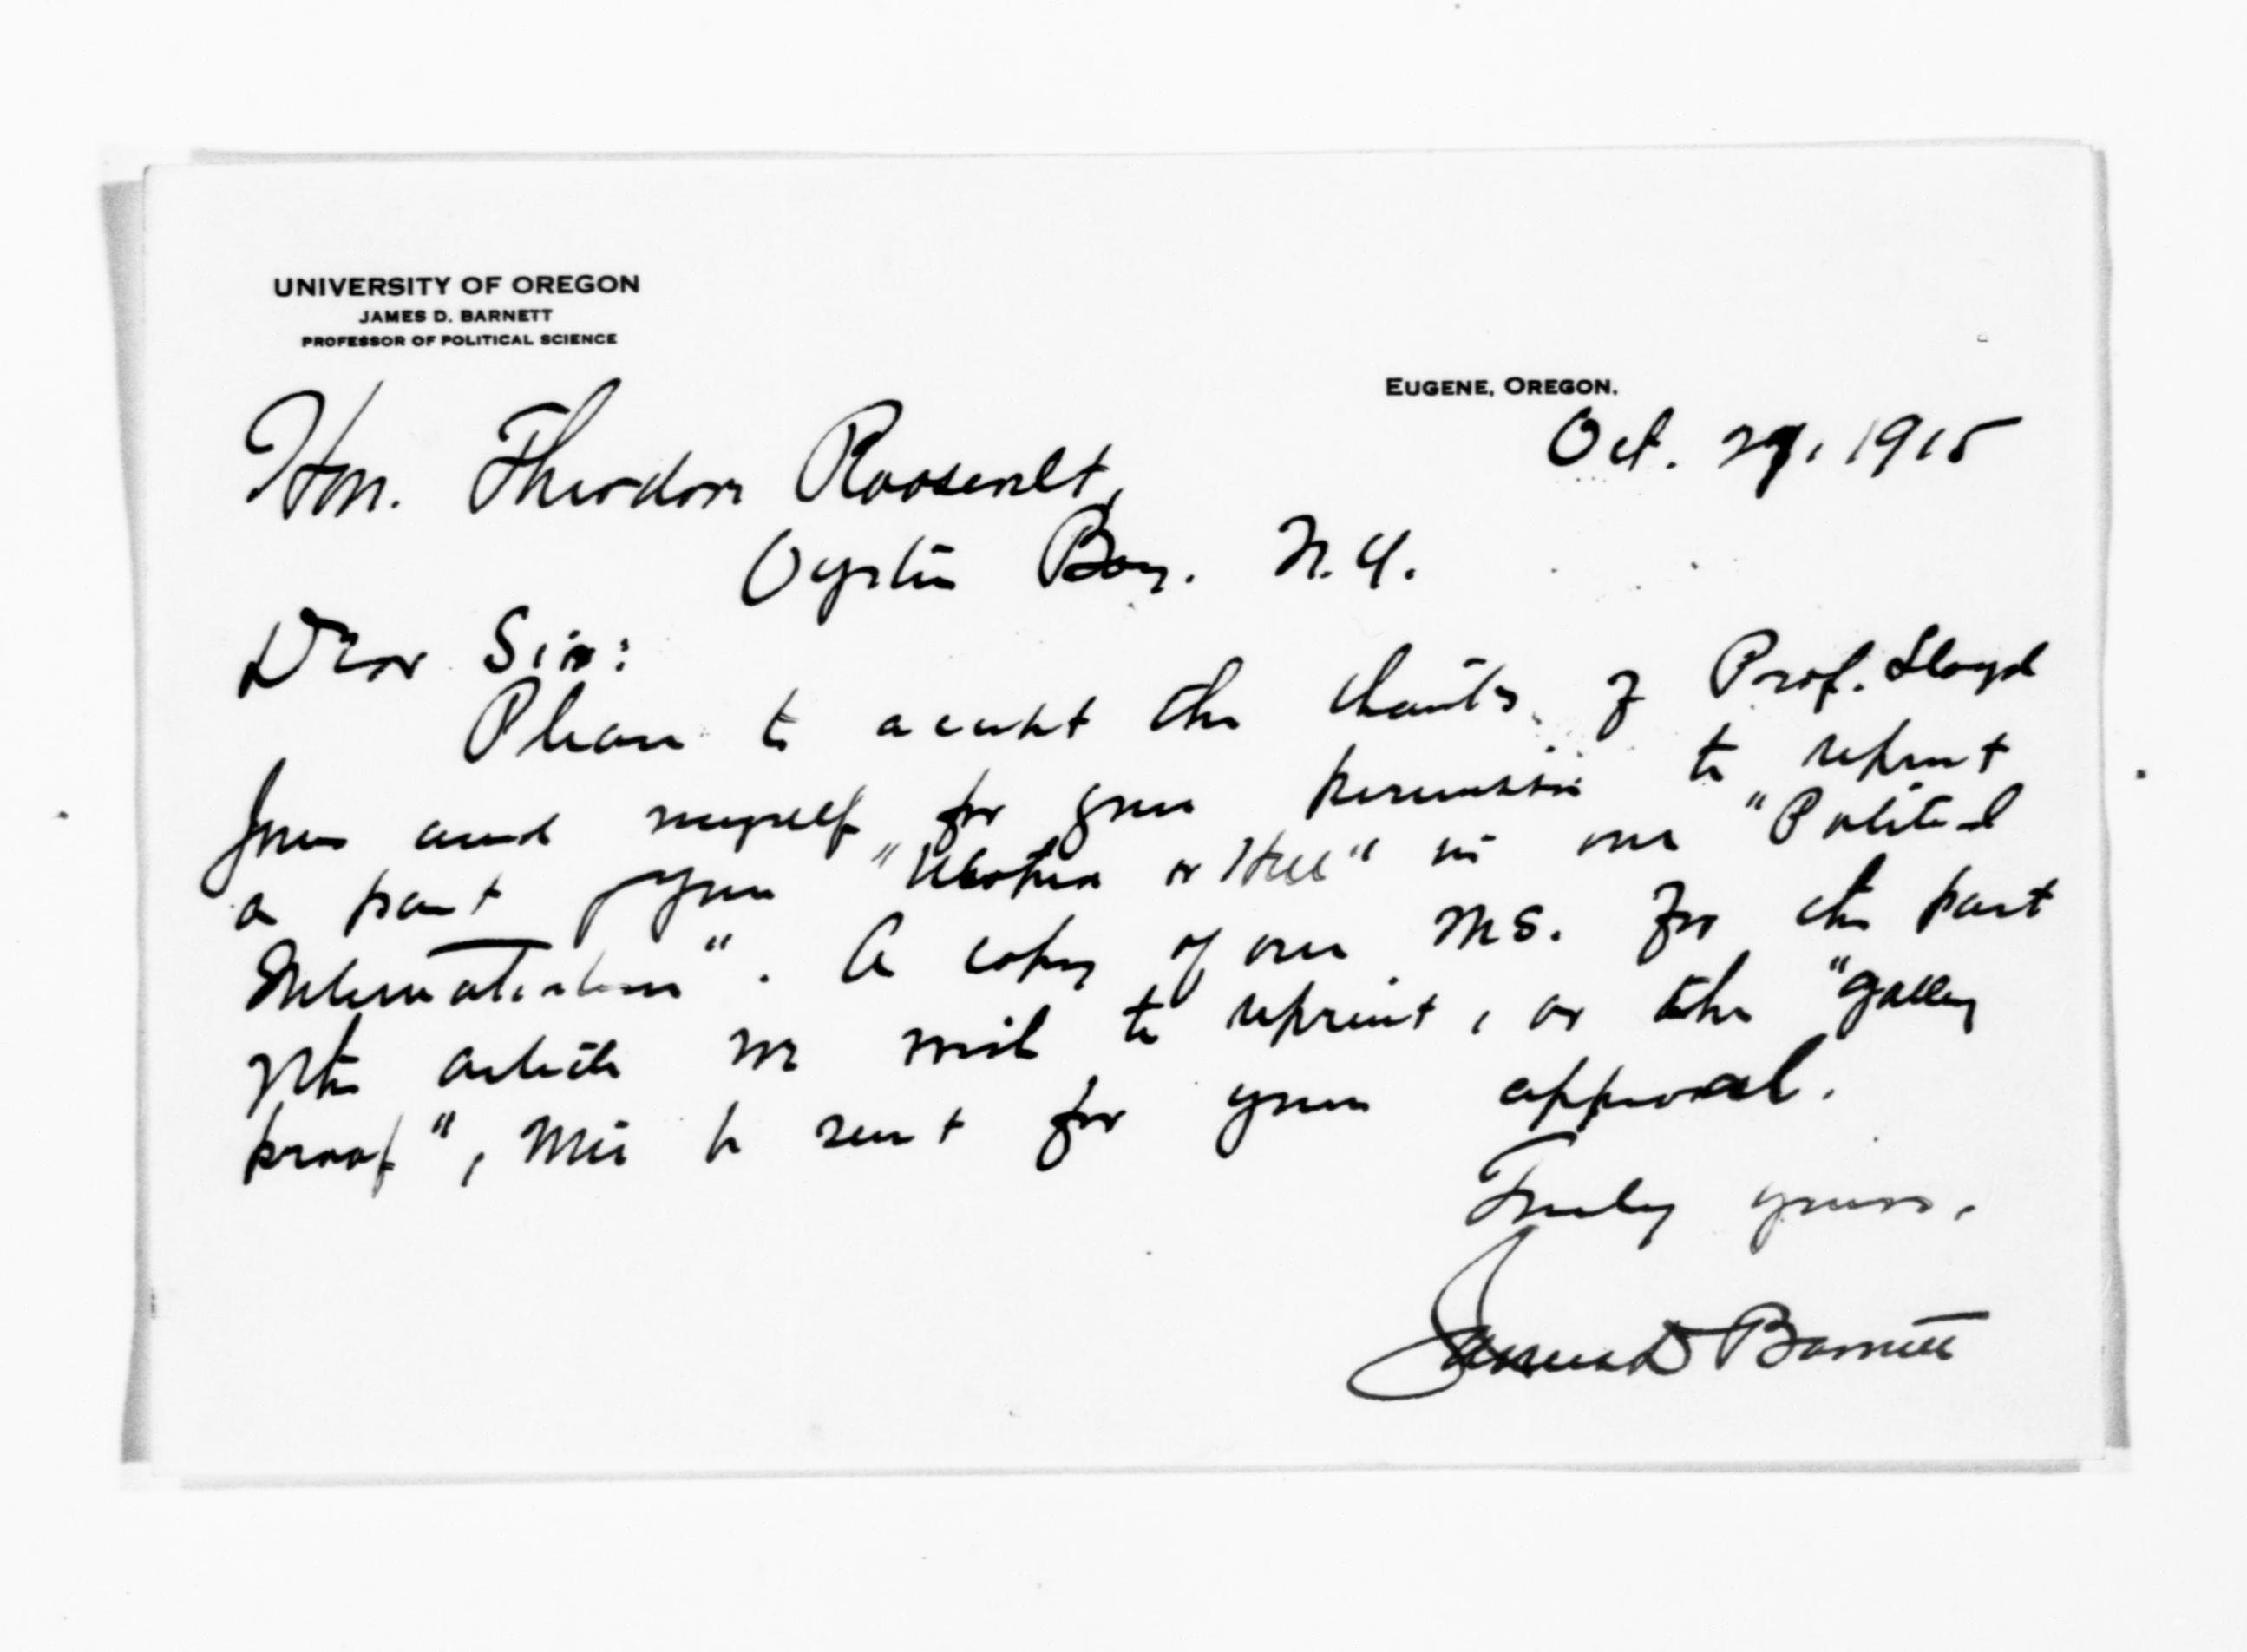 UNIVERSITY OF OREGON
JAMES D. BARNETT
PROFESSOR OF POLITICAL SCIENCE
EUGENE, OREGON.
Oct. 29, 1915
Hon. Theodore Roosevelt,
Oyster Bay, N.Y.
Dear Sir:
Please to accept the thanks of Prof. Lloyd
Jones and myself for your permission to reprint
a part of your "Utopia or Hell" in our "Political
Internationalism". A copy of our MS. for the part
of the article we wish to reprint, or the "galley
proof", will be sent for your approval.
Truly yours,
James D Barnett